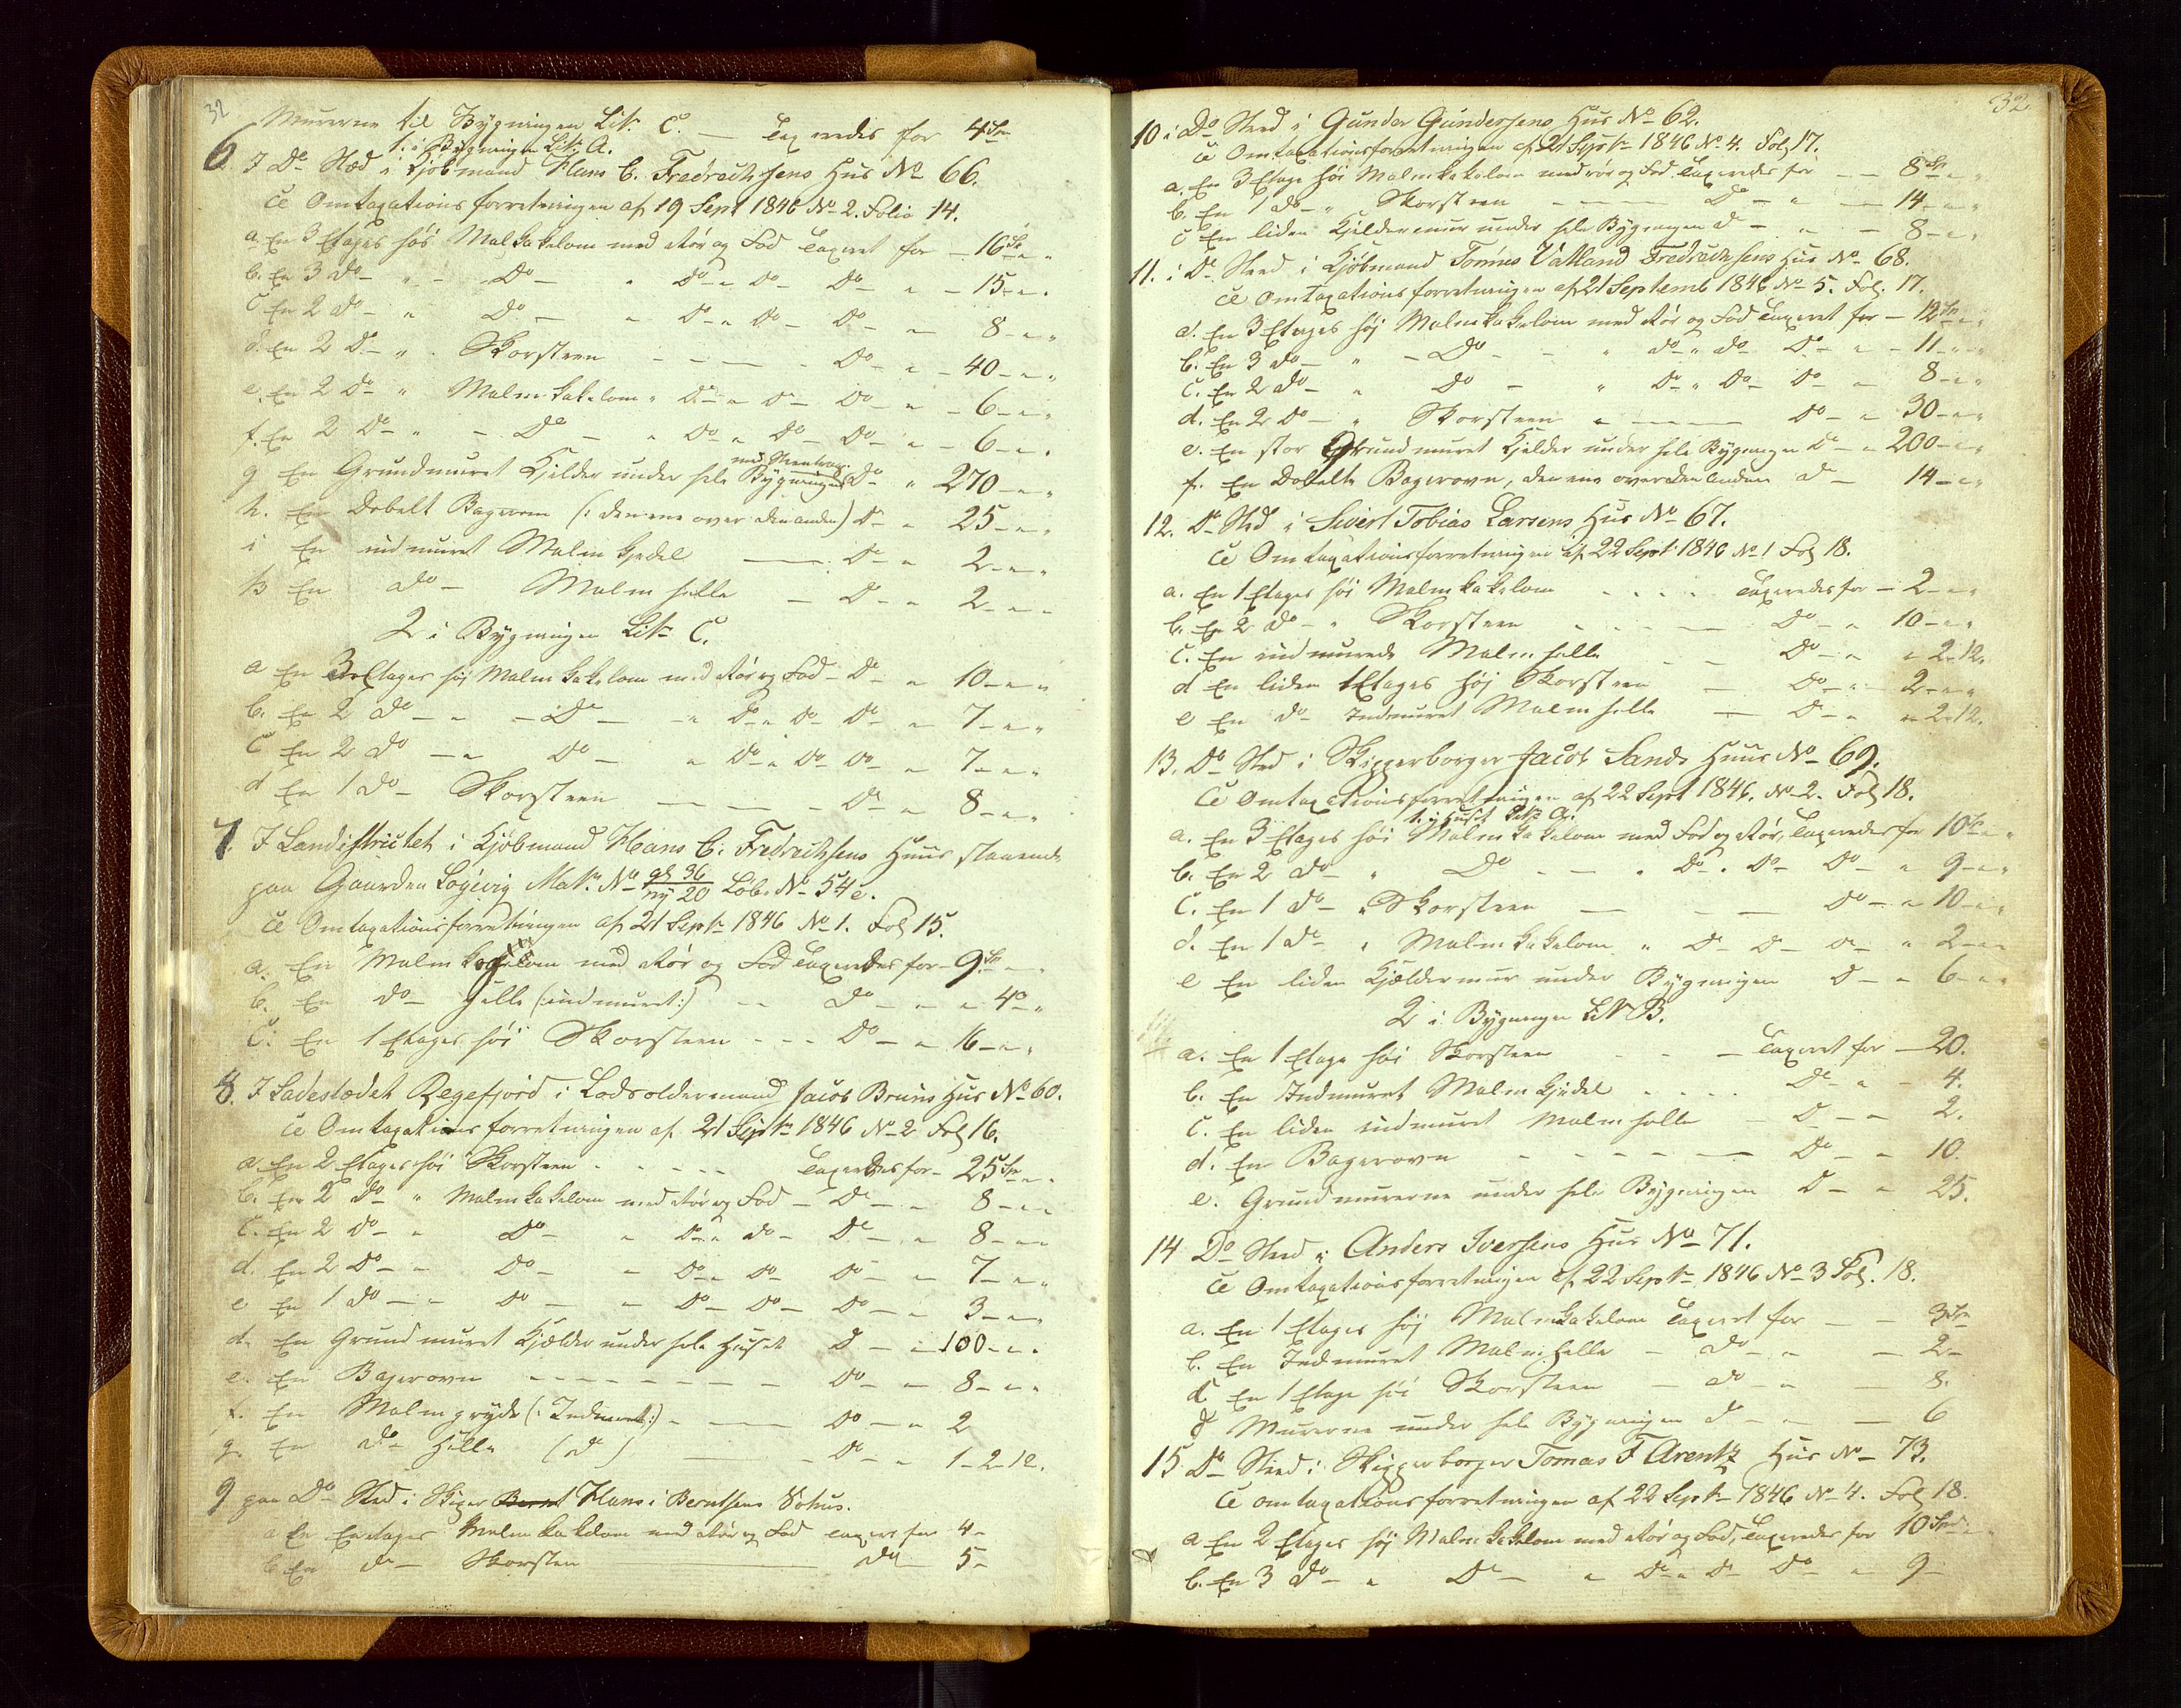 32
Murerne til Bygningen Litr C. — Taxeredes for 4 Spd
1. i Bygningen Litr A.
6. I Do Stæd i Kjøbmand Hans C. Fredrechsens Hus No 66.
cē Omtaxationsforretningen af 19 Sept 1846 No 2. Folio 14.
a. En 3 Etages høi Malkakelovn med Rør og Fod Taxeret for — 16 Sp „ „
b. En 3 do — „ — Do — „ do „ do — do „ — 15 — „ „
c En 2 do — „ Do — „ do „ do — do — „ 8 — „ „
d. En 2 do — „ Skorsteen — — — Do — „ — 40 — „ „
e. En 2 do „ Malmkakelovn „ do „ do — do — „ — 6 — „ „
f. En 2 do — „ — Do — „ do „ do — do „ — 6 — „ „
g En Grundmuret Kjelder under hele Bygningen do „ 270 — „ „
h. En Dobelt Bagerovn (: den ene over den anden) do — „ 25 — „ „
i En indmuret Malm Kjedel — do — „ 2 — „ „
k En do — Malm helle — do — „ 2 — „ „
2 i Bygningen Litr C.
a En 3 Etages høi Malmkakelovn med Rør og Fod — do — „ 10 — „ „
b. En 2 do — „ — Do — „ do „ do — do — „ 7 — „ „
c En 2 do — „ Do — „ do „ do do — „ 7 — „ „
d En 1 do — Skorsteen — — — do — „ 8 — „ „
7. I Landistrictet i Kjøbmand Hans C. Fredrechsens Huus staaende
paa Gaarden Sogevig Matr. No gl 36 / ny 20 Løb. No 54 c.
cē Omtaxationsforretningen af 21 Septr 1846 No 1. Fol 15.
a. En Malmkakelovn med Rør og Fod Taxeredes for — 9 Sp „ „
b. En do — helle (: indmuret :) — Do — „ „ 4 o „
c. En 1 Etages høi Skorsteen - - - Do — „ 16 — „ „
8. I Ladestædet Regefjord i Lodsoldermand Jacob Bruns Hus No 60.
cē Omtaxationsforretningen af 21 Septr 1846 No 2 Fol 16.
a En 2 Etages høi Skorsteen - - - - - Taxeredes for — 25 Sp „ „
b. En 2 do „ Malmkakelovn med Rør og Fod — do — „ 8 — „ „
c. En 2 do — „ Do — „ do „ do — do — „ 8 — „ „
d. En 2 do — „ Do — „ do „ do do — „ 7 — „ „
e En 1 do — „ do — „ do — do — do — „ 3 — „ „
d. En Grundmuret Kjælder under hele Huset do — „ 100 — „ „
e. En Bagerovn - - - - - - - do — „ 8 — „ „
f. En Malmgryde (: Indmuret :) — do — „ 2
g. En do helle (do) — do — „ 1 — 2 — 12.
9 paa Do Sted i Skiper Bernt Hans i Berntsens Vohus.
a En Etages Malmkakelovn med Rør og Fod Taxeres for 4 —
b En do — Skorsten — do 5 —
32.
10 i Do Sted i Gunder Gundersens Hus No 62.
cē Omtaxationsforretningen af 21 Septr 1846 No 4. Fol 17.
a. En 3 Etage høi Malmkakelovn med rør og Fod Taxeredes for — — 8 Sp „ „
b. En 1 do — „ Skorsteen — — — do — „ — 14 — „ „
c En liden Kjeldermur under hele Bygningen do — „ — 8 — „ „
11. i Do Sted i Kjøbmand Tonnes Vatland Fredrechsens Hus No 68.
cē Omtaxationsforretningen af 21 Septemb 1846 No 5. Fol. 17.
a. En 3 Etages høi Malmkakelovn med Rør og Fod Taxeret for — 12 Sp „ „
b. En 3 do — „ — Do — „ do „ do do „ — 11 — „ „
c. En 2 do — „ Do — „ do „ do — do — „ 8 — „ „
d. En 2 do — „ Skorsteen „ — — do — „ 30 — „ „
e. En stor Grundmuret Kjelder under hele Bygningen do — „ 200 — „ „
f. En Dobelte Bagerovn, den ene over den anden do — 14 — „ „
12. Do Sted i Sivert Tobias Larsens Hus No 67.
cē Omtaxationsforretningen af 22 Sept. 1846 No 1 Fol 18.
a. En 1 Etages høi Malmkakelovn - - - - Taxeredes for — 2 — „ „
b. En 2 do — „ Skorsteen — do — „ 10 — „ „
c. En indmurede Malm helle — do — „ „ 2. 12.
d En liden 1 Etages høj Skorsteen — Do — „ 2 — „ „
e En do Indmuret Malm helle — do — „ „ 2. 12.
13. Do Sted i Skipperborger Jacob Sands Huus No 69.
cē Omtaxationsforretningen af 22 Sept 1846. No 2. Fol 18.
1. i Huset Litr A.
a. En 3 Etages høi Malmkakelovn med Fod og Rør, Taxeredes for 10 Sp „ „
b. En 2 do „ Do — — „ do „ do — do — „ 9 — „ „
c. En 1 do — „ Skorsteen — — — do — „ 10 — „ „
d. En 1 do „ Malmkakelovn „ do — do — do — „ 2 — „ „
e En liden Kjældermur under Bygningen do — „ 6 — „ „
2 i Bygningen Litr B.
a. En 1 Etage høi Skorsteen - - — Taxeret for — 20.
b. En Indmuret Malm Kjedel - - - - do — „ — 4.
c. En liden indmuret Malm helle — do — „ 2.
d. En Bagerovn - - - - - — do — „ 10.
e. Grundmurerne under hele Bygningen do — „ 25.
14 Do Sted i Anders Iversens Hus No 71.
cē Omtaxationsforretningen af 22 Septr 1846 No 3 Fol. 18.
a. En 1 Etages høj Malmkakelovn Taxeret for — — 3 Sp
b. En Indmuret Malm helle — do — „ — 2 —
c En 1 Etage høi Skorsteen — do — „ — 8.
d Murerne under hele Bygningen do — „ — 6
15 Do Sted i Skipperborger Tomas F Arentz Hus No 73.
cē omtaxationsforretningen af 22 Septr 1846 No 4. Fol 18.
a En 2 Etages høj Malmkakelovn med Rør og Fod, Taxeredes for 10 Spd „ „
b. En 3 do — „ Do — „ do „ do — do — „ 9 —